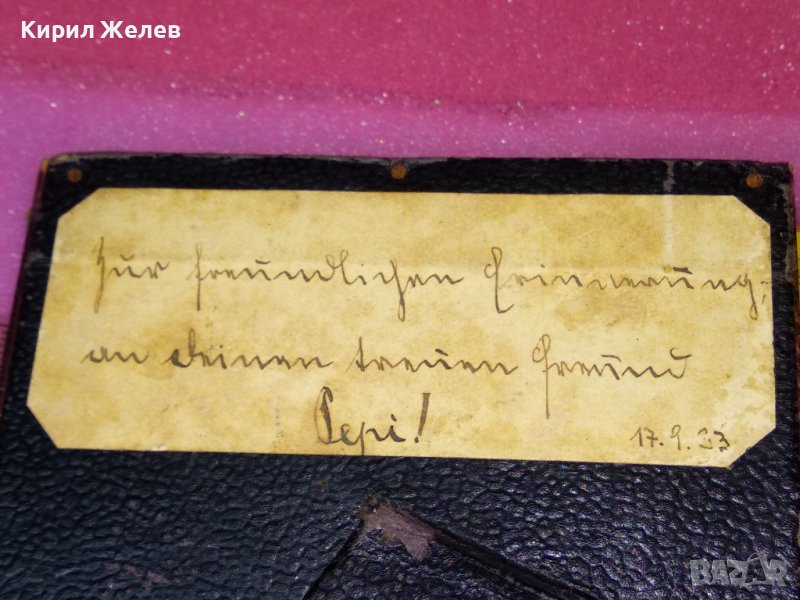 Кирил Желев
Zur freundlichen Erinnerung,
an deinen treuen Freund
Pepi!
17.9.33
BAZAR